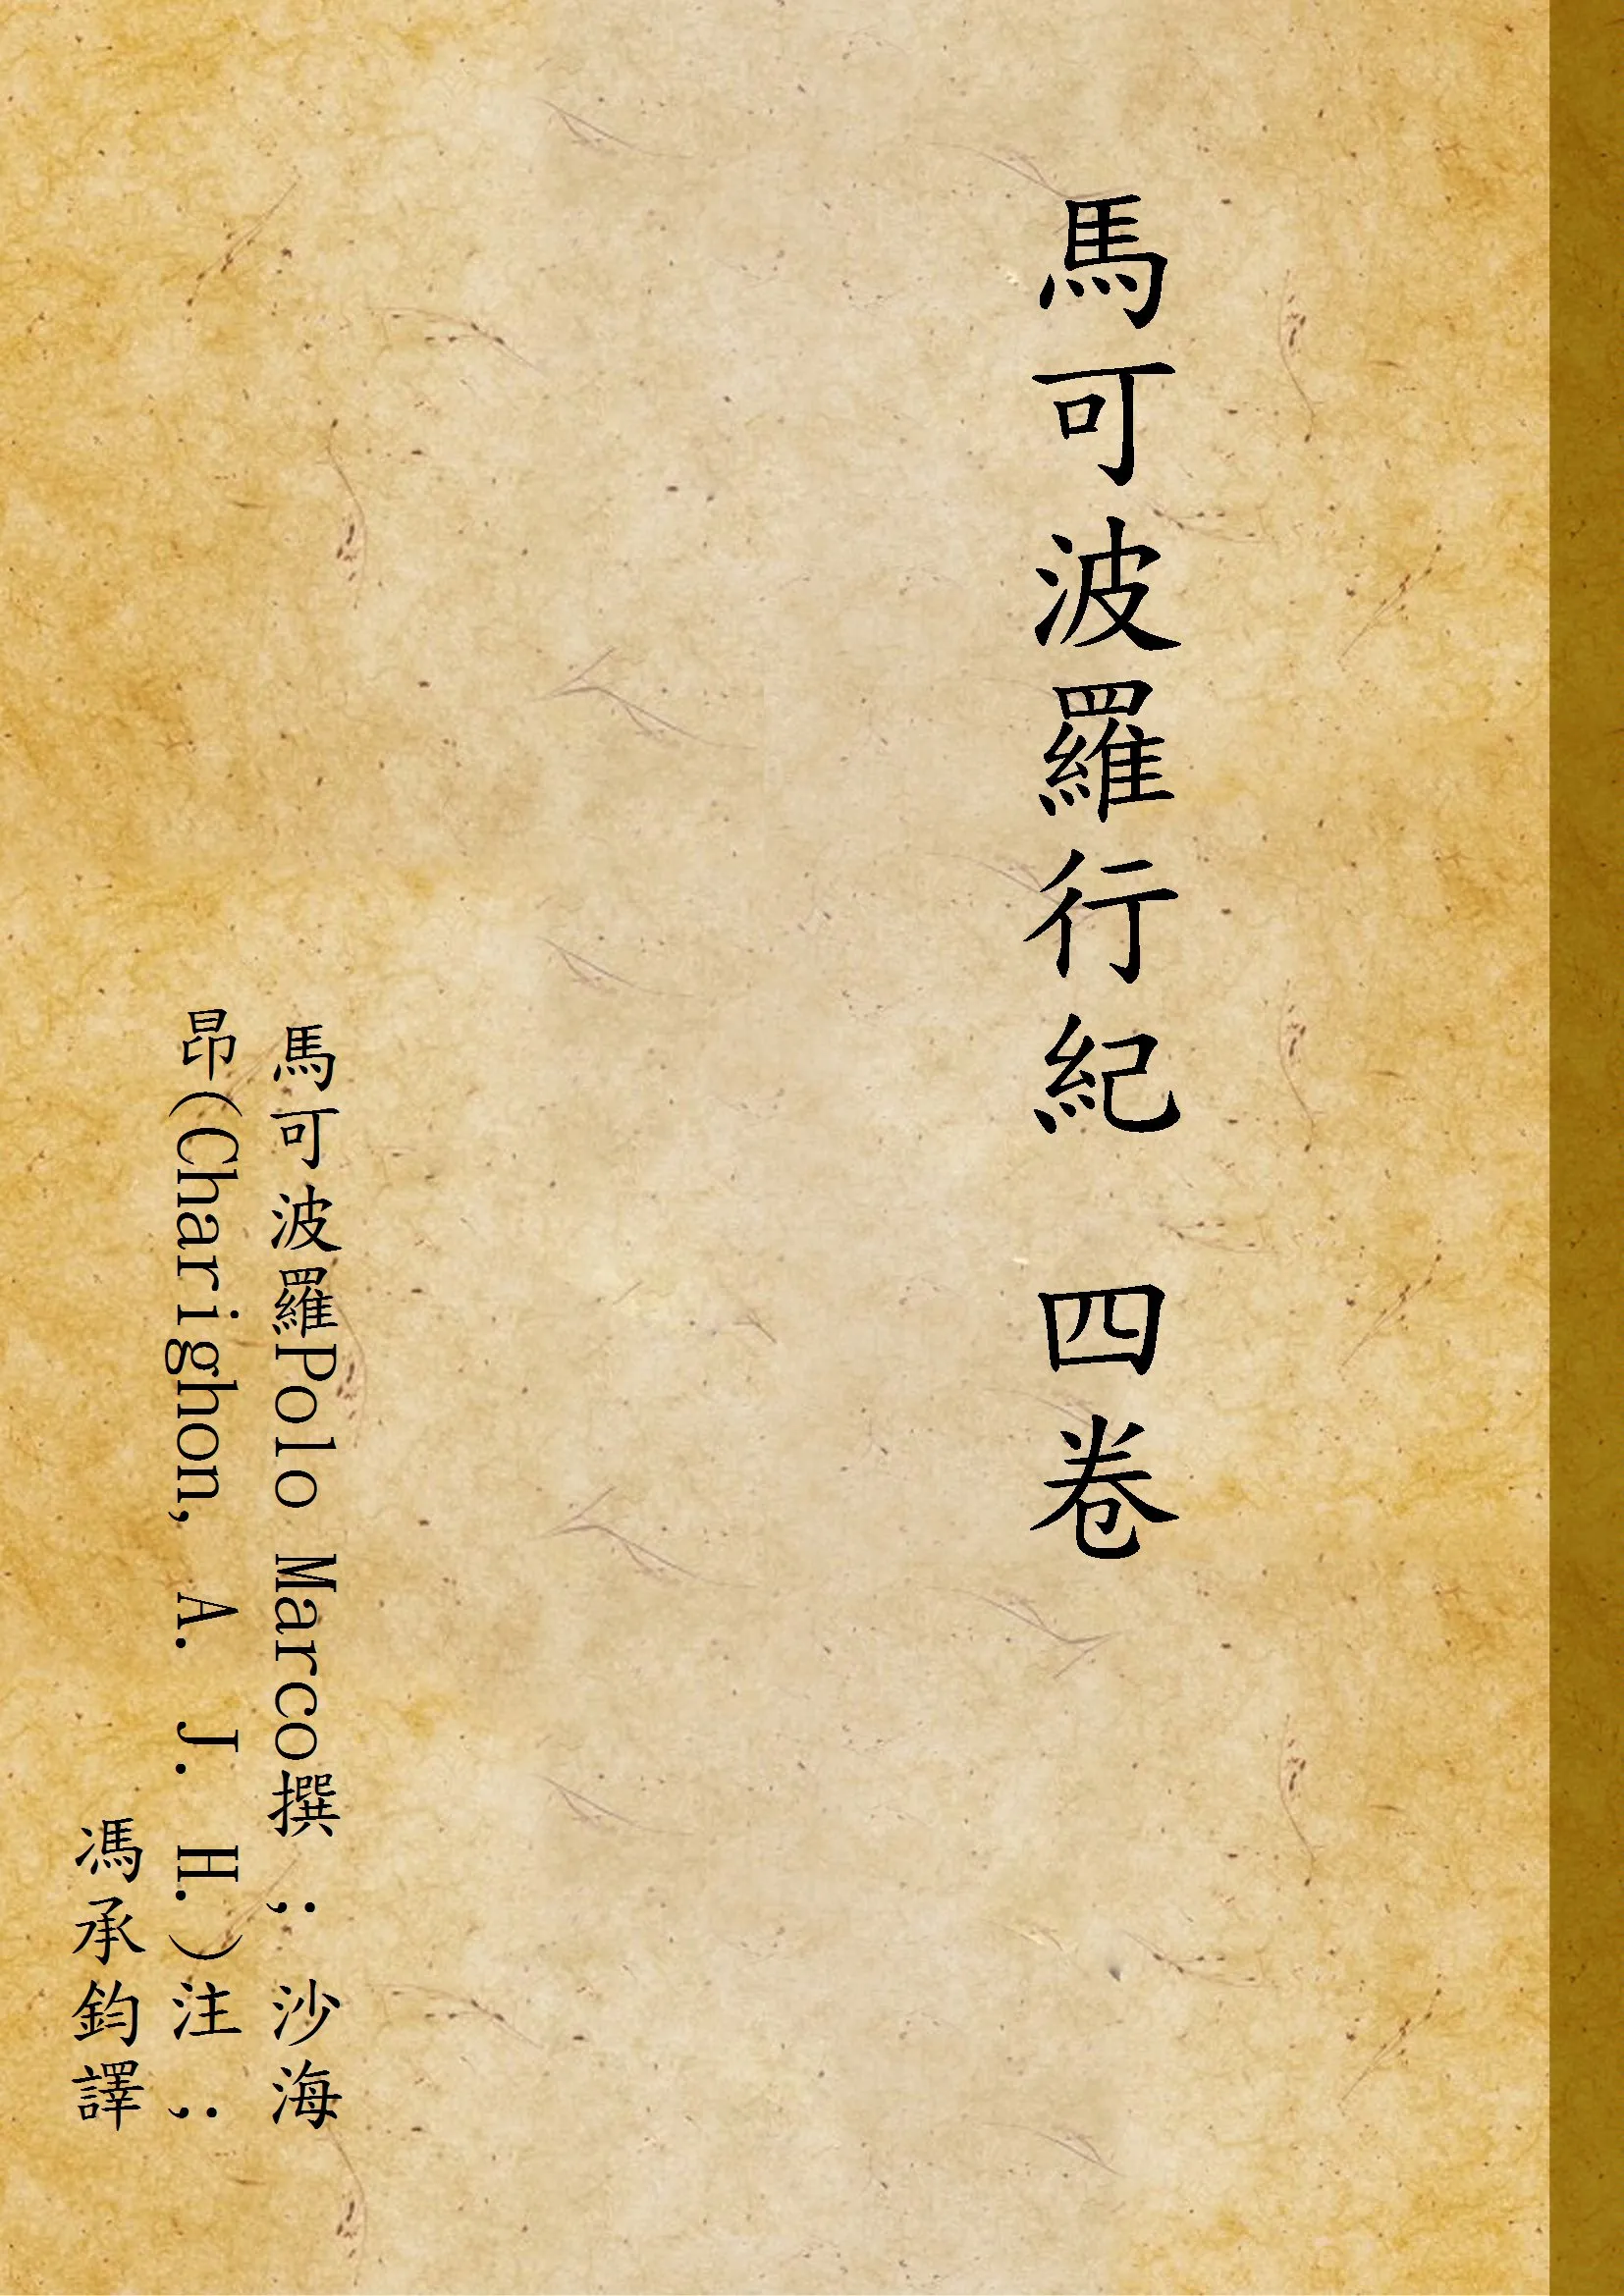 馬可波羅行紀 四卷
馬可波羅Polo Marco撰 ; 沙海
昂(Charighon, A. J. H.)注 ;
馮承鈞譯